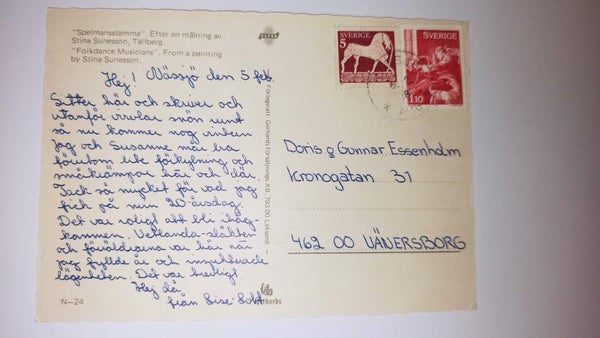 "Spelmansstämma". Efter en målning av
Stina Sunesson, Tällberg.
"Folkdance Musicians". From a painting
by Stina Sunesson.
Hej! Nässjö den 5 feb.
Sitter här och skriver och
utanför virvlar snön runt
så nu kommer nog vintern
jag och Susanne mår bra
förutom lite förkylning och
småkrämpor här och där.
Tack så mycket för vad jag
fick på min 20-årsdag.
Det var roligt att bli ihåg-
kommen. Vetlanda-släkten
och föräldrarna var här när
jag fyllde år och inspekterade
lägenheten. Det var trevligt.
Hej då
från Lise-Lott
N-24
Förlagsrätt: Gerhards Försäljnings AB, 793 00 Leksand
SVERIGE
5
SVERIGE
1.10
Doris o Gunnar Essenholm
Kronogatan 31
462 00 VÄNERSBORG